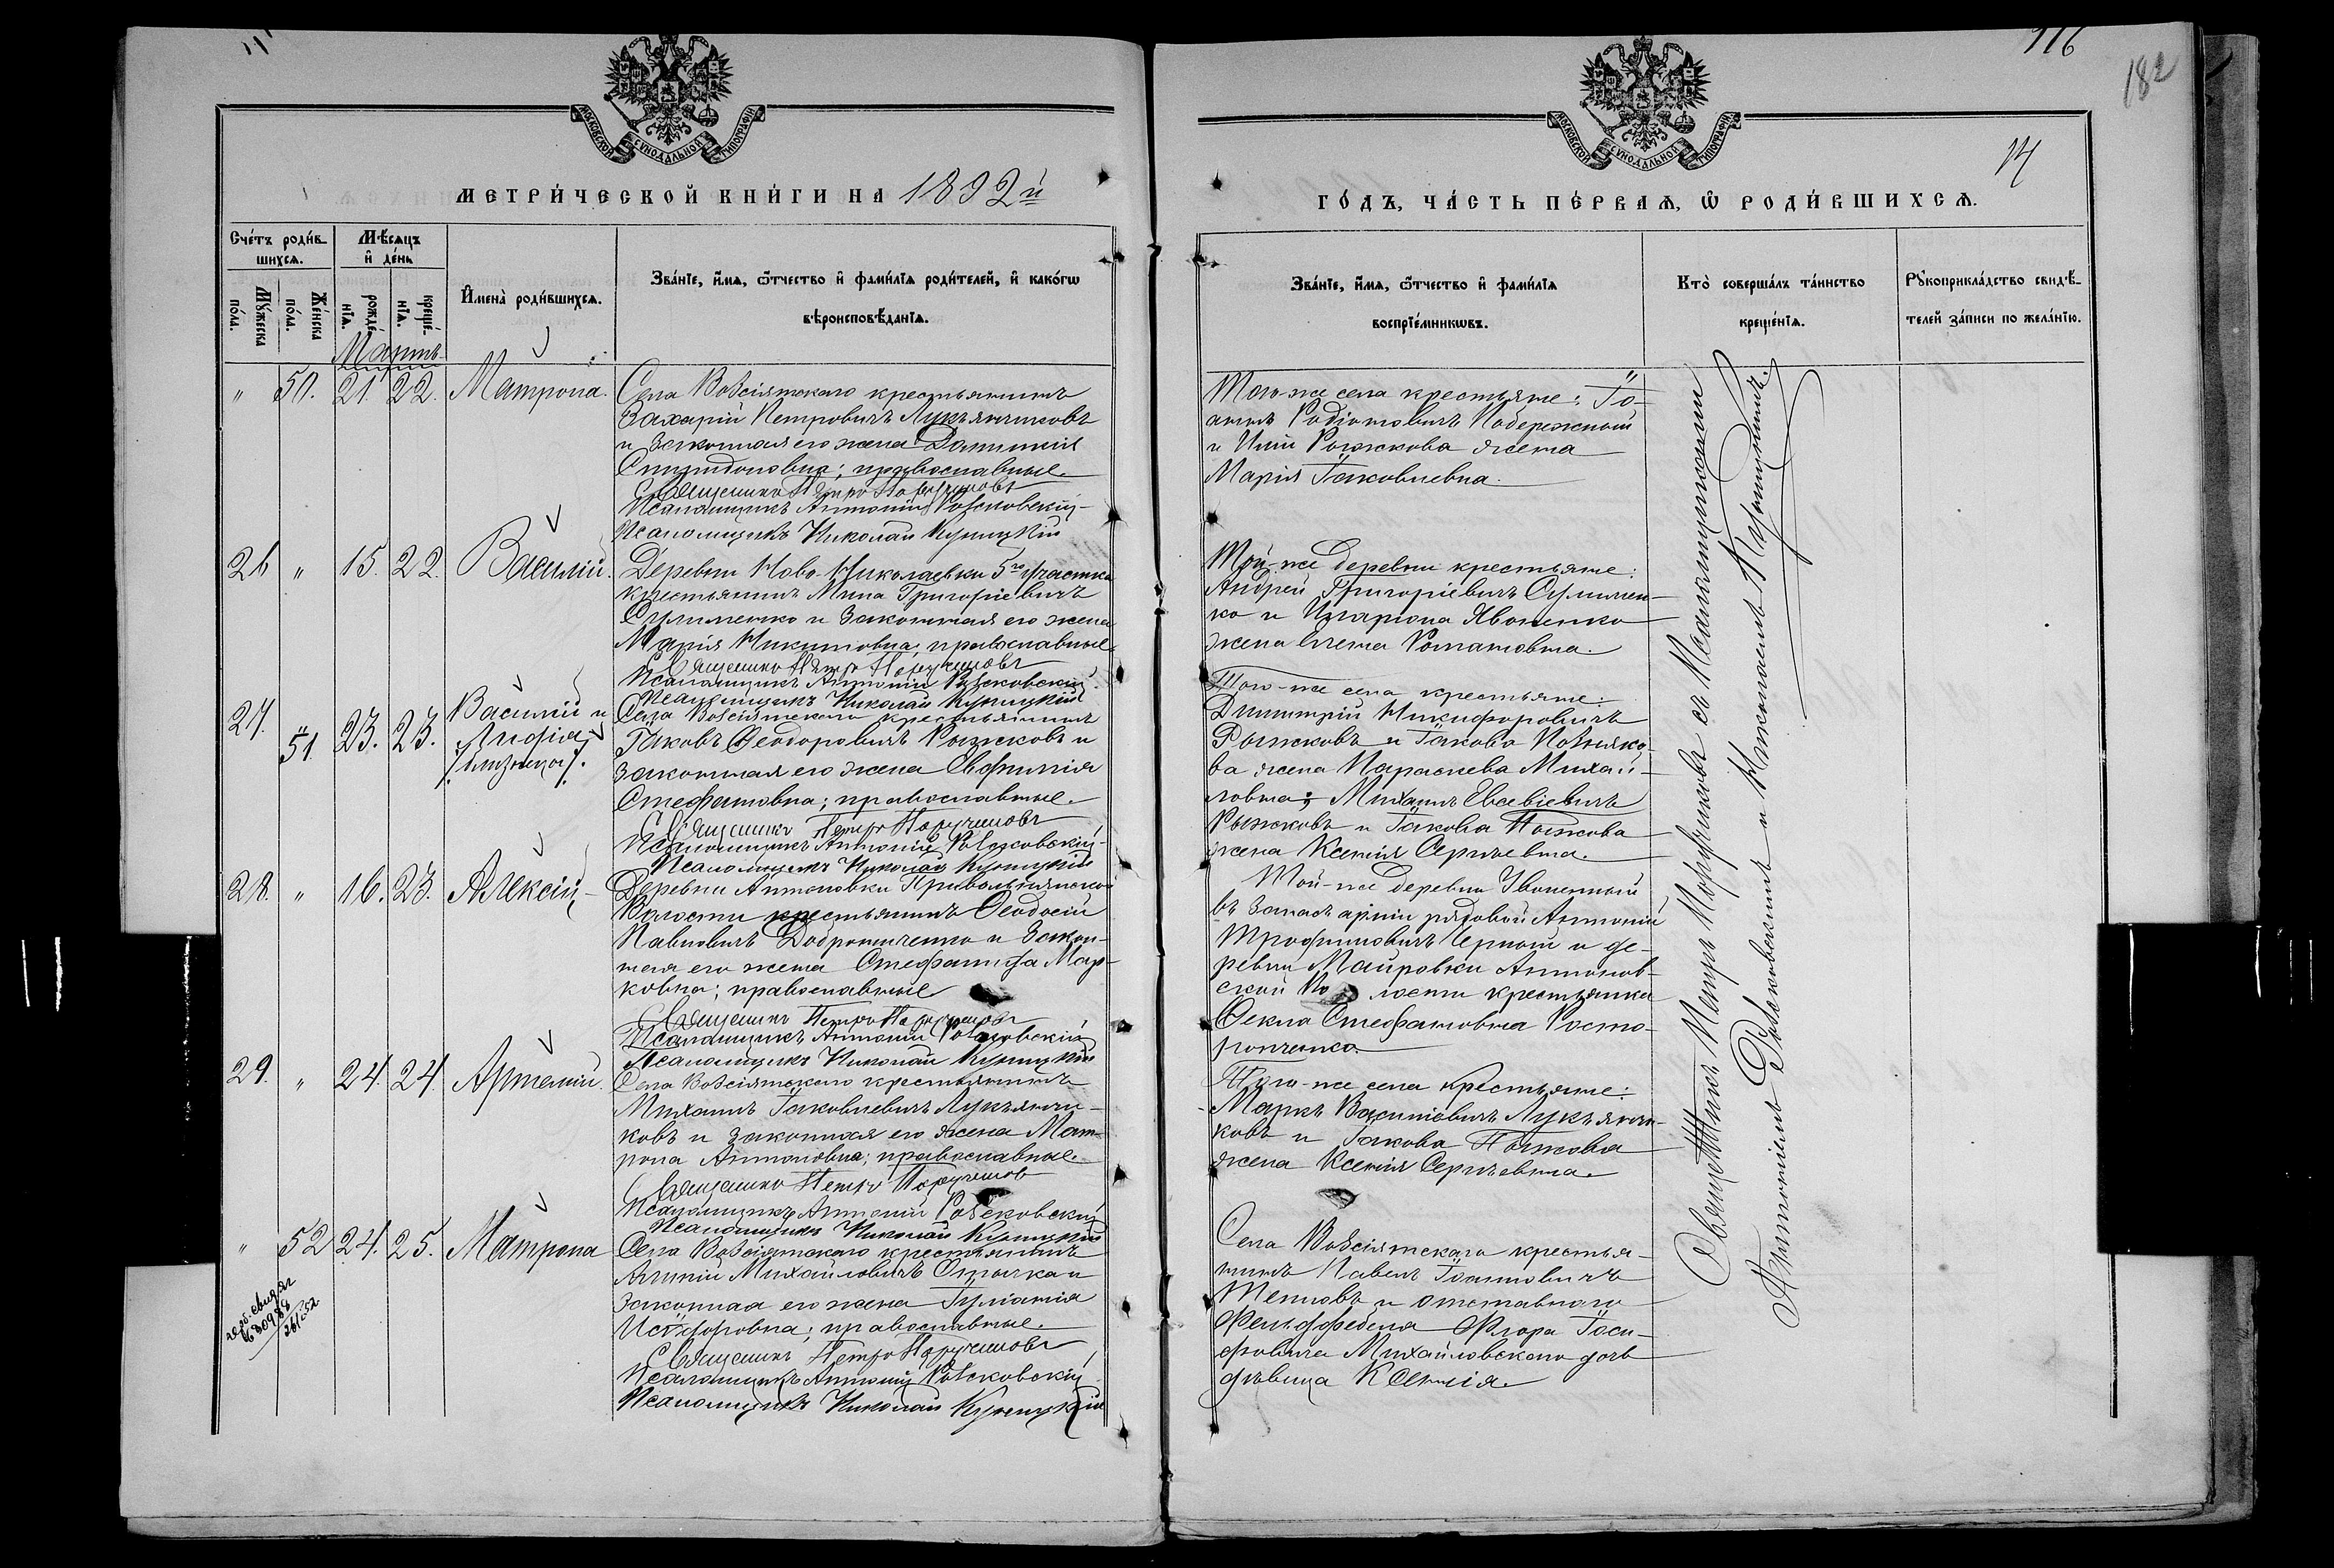 116
182
14
МОСКОВСКОЙ СѴНОДАЛЬНОЙ ТИПОГРАФІИ
МЕТРИ́ЧЕСКОЙ КНИ́ГИ НА 1892й
Сче́тъ роди́в-
шихсѧ.
Мꙋ́жеска
по́ла.
Же́нска
по́ла.
Мѣ́сѧцъ
и҆ де́нь
рожде́-
нїѧ.
креще́-
нїѧ.
И҆мена̀ роди́вшихсѧ.
Зва́нїе, и҆́мѧ, ѻ҆́тчество и҆ фами́лїѧ роди́телей, и҆ како́гѡ
вѣроисповѣ́данїѧ.
Мартъ
" 50. 21. 22. Матрона.
Села Возсіятскаго крестьянинъ
Захарій Петровичъ Лукьянчиковъ
и законная его жена Домникія
Спиридоновна; православные.
Священникъ Петръ Поручиковъ
Псаломщикъ Антоній Росковскій
Псаломщикъ Николай Куницкій
26 " 15. 22. Василій.
Деревни Ново-Николаевки 5го участка
крестьянинъ Мина Григоріевичъ
Сулименко и законная его жена
Марія Никитовна; православные.
Священникъ Петръ Поручиковъ
Псаломщикъ Антоній Росковскій
Псаломщикъ Николай Куницкій
27. " 51. 23. 23. Василій и
Лидія
/близнецы/.
Села Возсіятскаго крестьянинъ
Іаковъ Ѳеодоровичъ Рыжковъ и
законная его жена Евфимія
Стефановна; православные.
Священникъ Петръ Поручиковъ
Псаломщикъ Антоній Росковскій
Псаломщикъ Николай Куницкій
28. " 16. 23. Алексій
Деревни Антоновки Привольнянской
Волости крестьянинъ Ѳеодосій
Павловичъ и закон-
ная его жена Стефанида Мар-
ковна; православные
Священникъ Петръ Поручиковъ
Псаломщикъ Антоній Росковскій
Псаломщикъ Николай Куницкій
29. " 24. 24. Артемій.
Села Возсіятскаго крестьянинъ
Михаилъ Іаковлевичъ Лукьянчи-
ковъ и законная его жена Мат-
рона Антоновна; православные.
Священникъ Петръ Поручиковъ
Псаломщикъ Антоній Росковскій
Псаломщикъ Николай Куницкій
" 52 24. 25. Матрона
Села Возсіятскаго крестьянинъ
Михайловичъ и
законная его жена Гуліанія
православные.
Священникъ Петръ Поручиковъ
Псаломщикъ Антоній Росковскій
Псаломщикъ Николай Куницкій
МОСКОВСКОЙ СѴНОДАЛЬНОЙ ТИПОГРАФІИ
ГО́ДЪ, ЧА́СТЬ ПЕ́РВАѦ, Ѡ҆ РОДИ́ВШИХСѦ.
Зва́нїе, и҆́мѧ, ѻ҆́тчество и҆ фами́лїѧ
воспрїе́мникѡвъ.
Кто̀ соверша́лъ та́инство
креще́нїѧ.
Рꙋкоприкла́дство свидѣ́-
телей за́писи по жела́нїю.
Того-же села крестьяне: Іо-
аннъ Родіоновичъ Побережный
и Иліи Рыжкова жена
Марія Іаковлевна.
Той-же деревни крестьяне:
Андрей Григоріевичъ Сулимен-
ко и Иларіона Явоненко
жена Елена Романовна.
Того-же села крестьяне:
Димитрій Никифоровичъ
Рыжковъ и Іакова Позняко-
ва жена Параскева Михай-
ловна; Михаилъ Евсевіевичъ
Рыжковъ и Іакова Пыжова
жена Ксенія Сергіевна.
Той-же деревни уволенный
въ запасъ арміи рядовой Антоній
Трофимовичъ Черный и де-
ревни Маировки Антонов-
ской Волости крестьянка
Ѳекла Стефановна Росто-
Того-же села крестьяне:
Маркъ Василіевичъ Лукьянчи-
ковъ и Іакова Пыжова
жена Ксенія Сергіевна.
Села Возсіятскаго крестья-
нинъ Павелъ Іоанновичъ
и отставнаго
Фельдфебеля Флора Іоси-
фовича Михайловскаго дочь
дѣвица Ксенія.
Священникъ Петръ Поручиковъ съ Псаломщиками
Антоніемъ Росковскимъ и Николаемъ Куницкимъ.